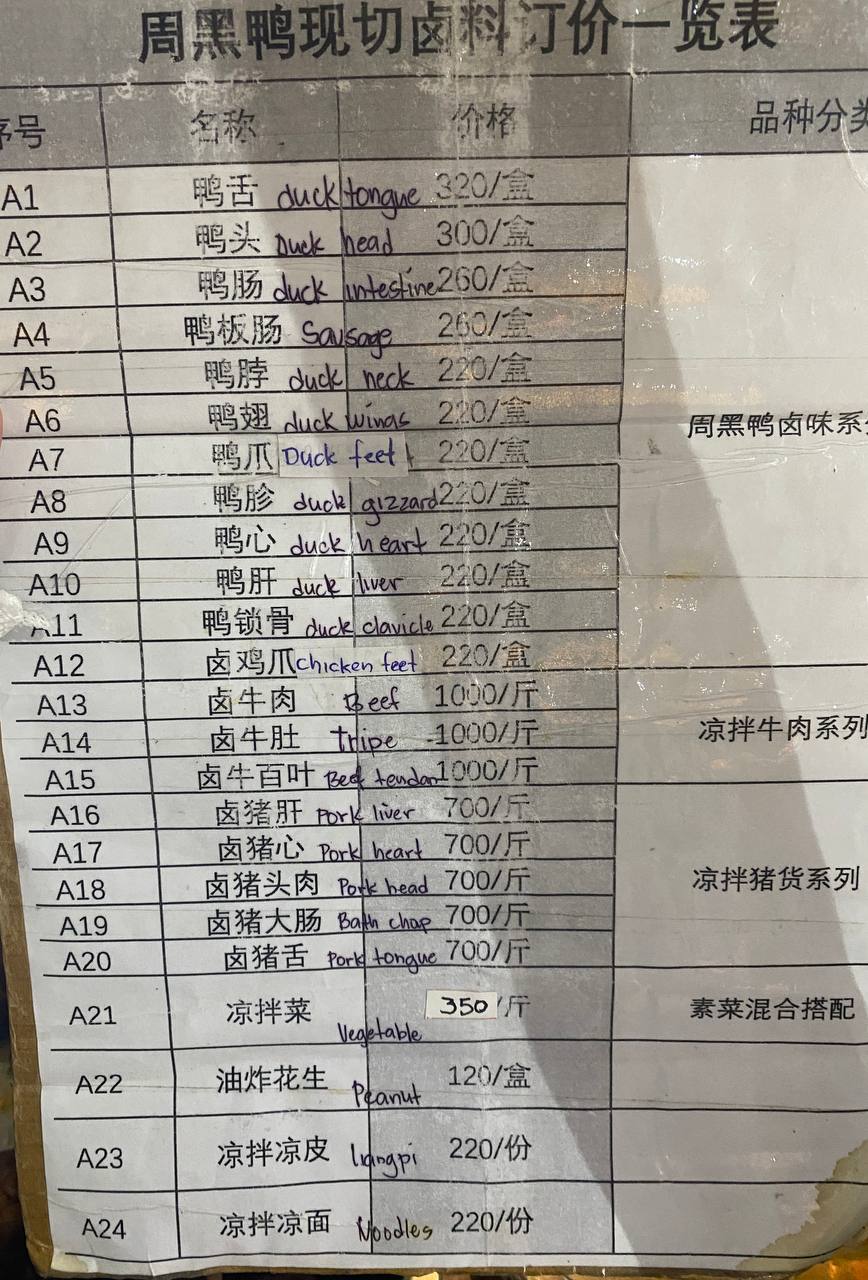 周黑鸭现切卤料订价一览表
序号 名称 价格 品种分类
A1 鸭舌 duck tongue 320/盒
A2 鸭头 Duck head 300/盒
A3 鸭肠 duck intestine 260/盒
A4 鸭板肠 Sausage 260/盒
A5 鸭脖 duck neck 220/盒
A6 鸭翅 duck wings 220/盒
周黑鸭卤味系
A7 鸭爪 Duck feet 220/盒
A8 鸭胗 duck gizzard 220/盒
A9 鸭心 duck heart 220/盒
A10 鸭肝 duck liver 220/盒
A11 鸭锁骨 duck clavicle 220/盒
A12 卤鸡爪 Chicken feet 220/盒
A13 卤牛肉 Beef 1000/斤
A14 卤牛肚 tripe 1000/斤 凉拌牛肉系列
A15 卤牛百叶 Beef tendan 1000/斤
A16 卤猪肝 Pork liver 700/斤
A17 卤猪心 Pork heart 700/斤
A18 卤猪头肉 Pork head 700/斤 凉拌猪货系列
A19 卤猪大肠 Bath chap 700/斤
A20 卤猪舌 Pork tongue 700/斤
A21 凉拌菜 Vegetable 350/斤 素菜混合搭配
A22 油炸花生 Peanut 120/盒
A23 凉拌凉皮 liangpi 220/份
A24 凉拌凉面 Noodles 220/份